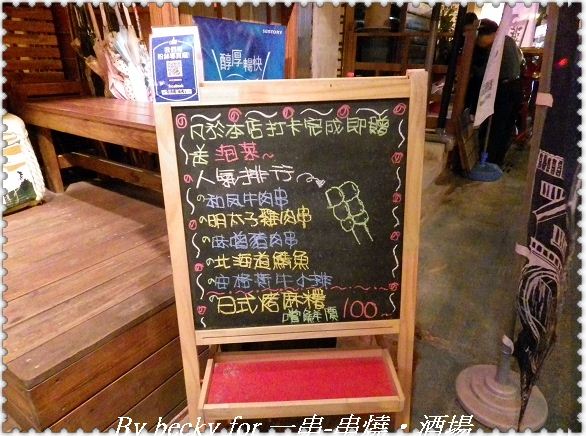 SUNTORY
醇厚暢快
凡於本店打卡完成即贈
送 泡菜~
人氣排行
和風牛肉串
明太子雞肉串
味噌豬肉串
北海道鯖魚
安格斯牛小排
日式烤麻糬
嚐鮮價 100
By becky for 一串-串燒‧酒場